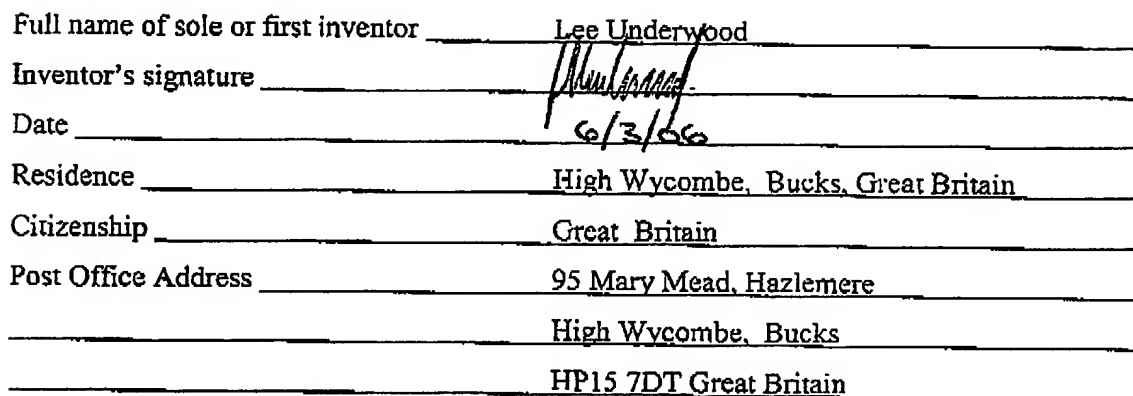 Full name of sole or first inventor Lee Underwood
Inventor's signature
Date 6/3/06
Residence High Wycombe, Bucks, Great Britain
Citizenship Great Britain
Post Office Address 95 Mary Mead, Hazlemere
High Wycombe, Bucks
HP15 7DT Great Britain